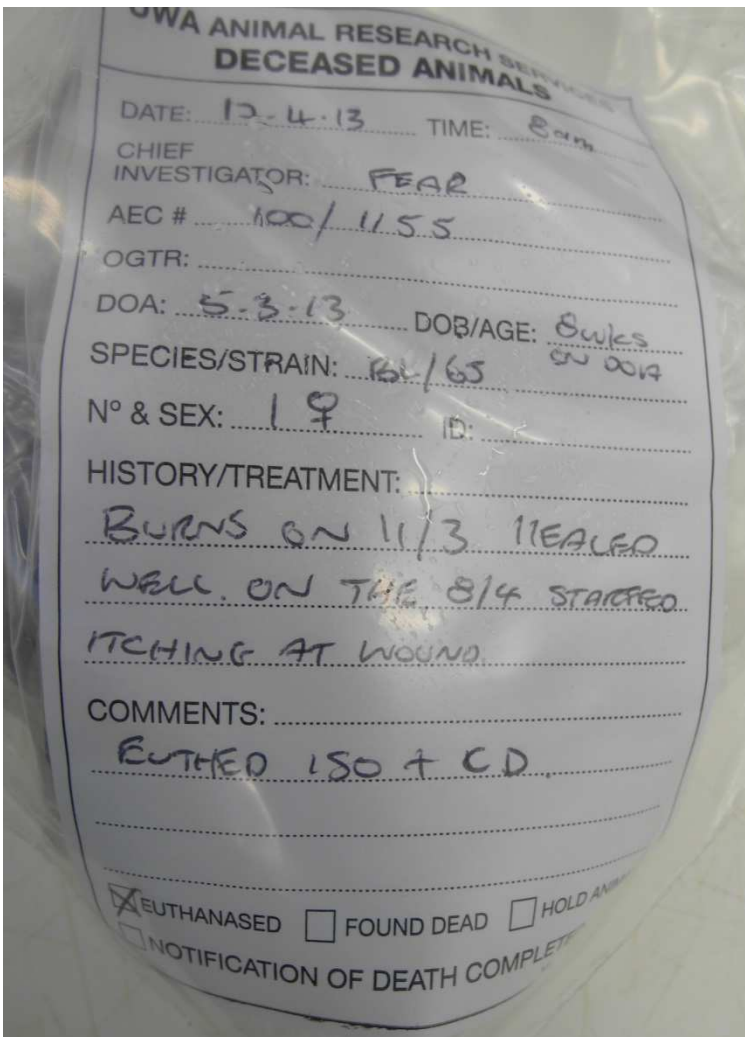 UWA ANIMAL RESEARCH SERVICES
DECEASED ANIMALS
DATE: 12.4.13 TIME: 8am
CHIEF
INVESTIGATOR: FEAR
AEC # 100/1155
OGTR:
DOA: 5.3.13 DOB/AGE: 8wks
ON DOA
SPECIES/STRAIN: BL/6J
Nº & SEX: 1 ♀ ID:
HISTORY/TREATMENT:
BURNS ON 11/3 HEALED
WELL. ON THE 8/4 STARTED
ITCHING AT WOUND.
COMMENTS:
EUTHED ISO + CD.
EUTHANASED FOUND DEAD HOLD
NOTIFICATION OF DEATH